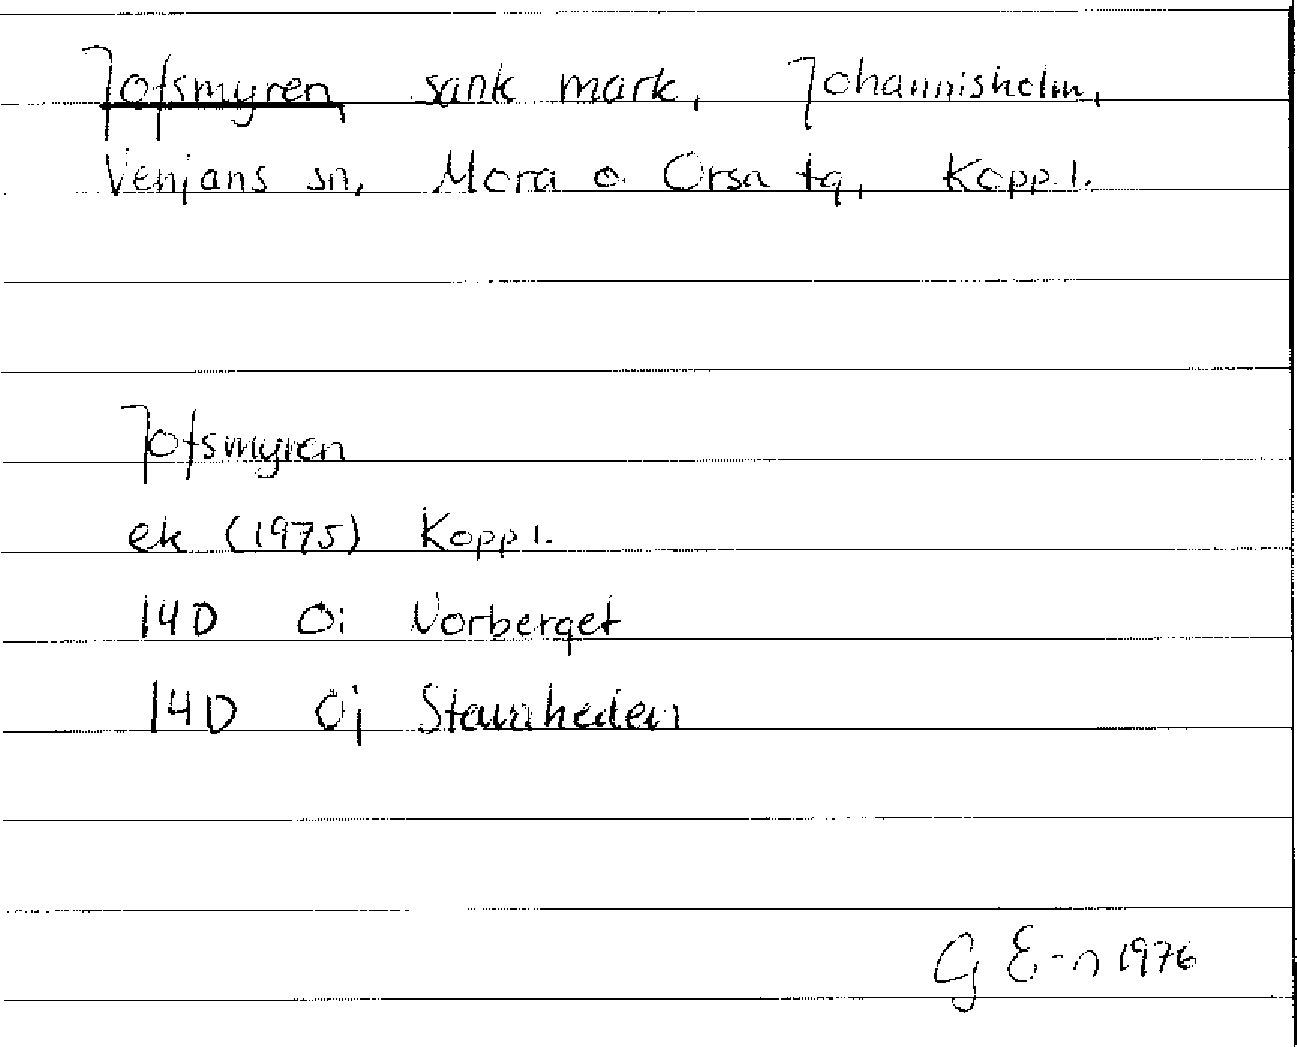 Jofsmyren, sank mark, Johannisholm,
Venjans sn, Mora o. Orsa tg, Kopp. l.
Jofsmyren
ek (1975) Kopp l.
14D 0i Vorberget
14D 0j Stavaheden
G E-n 1976